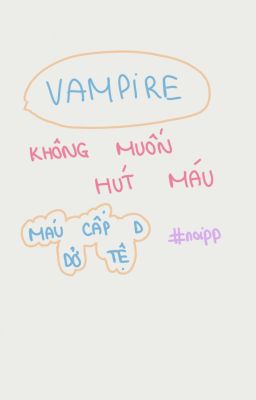 VAMPiRE
KHÔNG MUỐN
HÚT MÁU
MÁU CẤP D
DỞ TỆ
#naipp